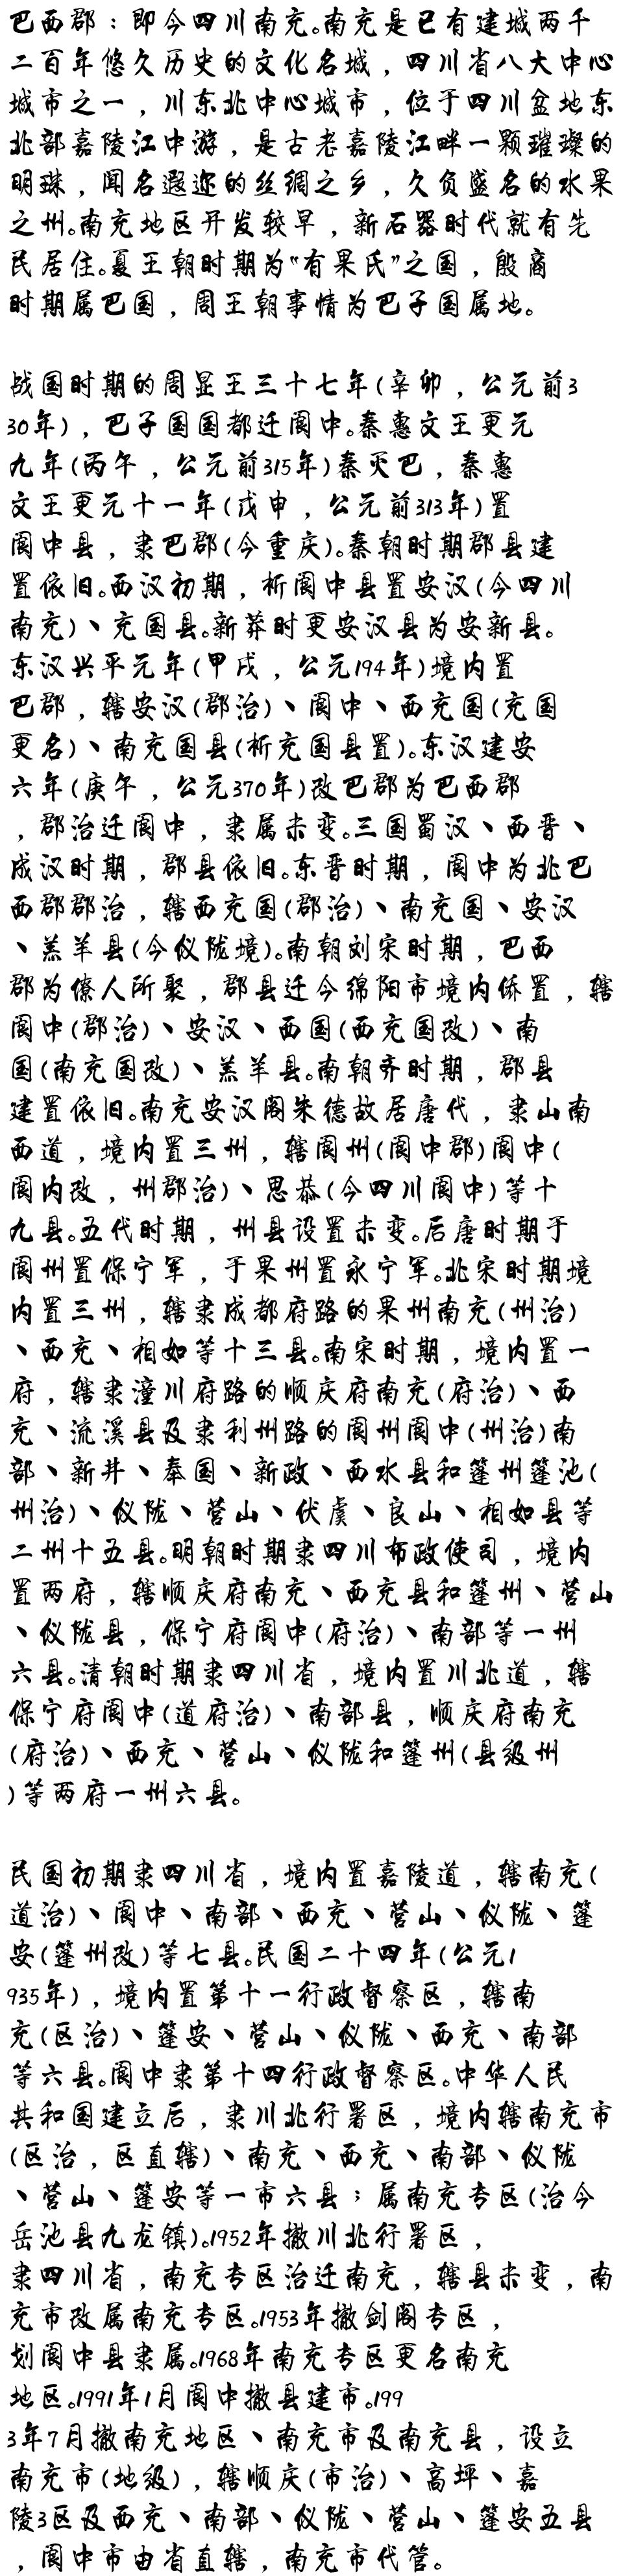 巴西郡：即今四川南充。南充是已有建城两千
二百年悠久历史的文化名城，四川省八大中心
城市之一，川东北中心城市，位于四川盆地东
北部嘉陵江中游，是古老嘉陵江畔一颗璀璨的
明珠，闻名遐迩的丝绸之乡，久负盛名的水果
之州。南充地区开发较早，新石器时代就有先
民居住。夏王朝时期为“有果氏”之国，殷商
时期属巴国，周王朝事情为巴子国属地。
战国时期的周显王三十七年(辛卯，公元前3
30年)，巴子国国都迁阆中。秦惠文王更元
九年(丙午，公元前315年)秦灭巴，秦惠
文王更元十一年(戊申，公元前313年)置
阆中县，隶巴郡(今重庆)。秦朝时期郡县建
置依旧。西汉初期，析阆中县置安汉(今四川
南充)、充国县。新莽时更安汉县为安新县。
东汉兴平元年(甲戌，公元194年)境内置
巴郡，辖安汉(郡治)、阆中、西充国(充国
更名)、南充国县(析充国县置)。东汉建安
六年(庚午，公元370年)改巴郡为巴西郡
，郡治迁阆中，隶属未变。三国蜀汉、西晋、
成汉时期，郡县依旧。东晋时期，阆中为北巴
西郡郡治，辖西充国(郡治)、南充国、安汉
、羔羊县(今仪陇境)。南朝刘宋时期，巴西
郡为僚人所聚，郡县迁今绵阳市境内侨置，辖
阆中(郡治)、安汉、西国(西充国改)、南
国(南充国改)、羔羊县。南朝齐时期，郡县
建置依旧。南充安汉阁朱德故居唐代，隶山南
西道，境内置三州，辖阆州(阆中郡)阆中(
阆内改，州郡治)、思恭(今四川阆中)等十
九县。五代时期，州县设置未变。后唐时期于
阆州置保宁军，于果州置永宁军。北宋时期境
内置三州，辖隶成都府路的果州南充(州治)
、西充、相如等十三县。南宋时期，境内置一
府，辖隶潼川府路的顺庆府南充(府治)、西
充、流溪县及隶利州路的阆州阆中(州治)南
部、新井、奉国、新政、西水县和蓬州蓬池(
州治)、仪陇、营山、伏虞、良山、相如县等
二州十五县。明朝时期隶四川布政使司，境内
置两府，辖顺庆府南充、西充县和蓬州、营山
、仪陇县，保宁府阆中(府治)、南部等一州
六县。清朝时期隶四川省，境内置川北道，辖
保宁府阆中(道府治)、南部县，顺庆府南充
(府治)、西充、营山、仪陇和蓬州(县级州
)等两府一州六县。
民国初期隶四川省，境内置嘉陵道，辖南充(
道治)、阆中、南部、西充、营山、仪陇、蓬
安(蓬州改)等七县。民国二十四年(公元1
935年)，境内置第十一行政督察区，辖南
充(区治)、蓬安、营山、仪陇、西充、南部
等六县。阆中隶第十四行政督察区。中华人民
共和国建立后，隶川北行署区，境内辖南充市
(区治，区直辖)、南充、西充、南部、仪陇
、营山、蓬安等一市六县；属南充专区(治今
岳池县九龙镇)。1952年撤川北行署区，
隶四川省，南充专区治迁南充，辖县未变，南
充市改属南充专区。1953年撤剑阁专区，
划阆中县隶属。1968年南充专区更名南充
地区。1991年1月阆中撤县建市。199
3年7月撤南充地区、南充市及南充县，设立
南充市(地级)，辖顺庆(市治)、高坪、嘉
陵3区及西充、南部、仪陇、营山、蓬安五县
，阆中市由省直辖，南充市代管。